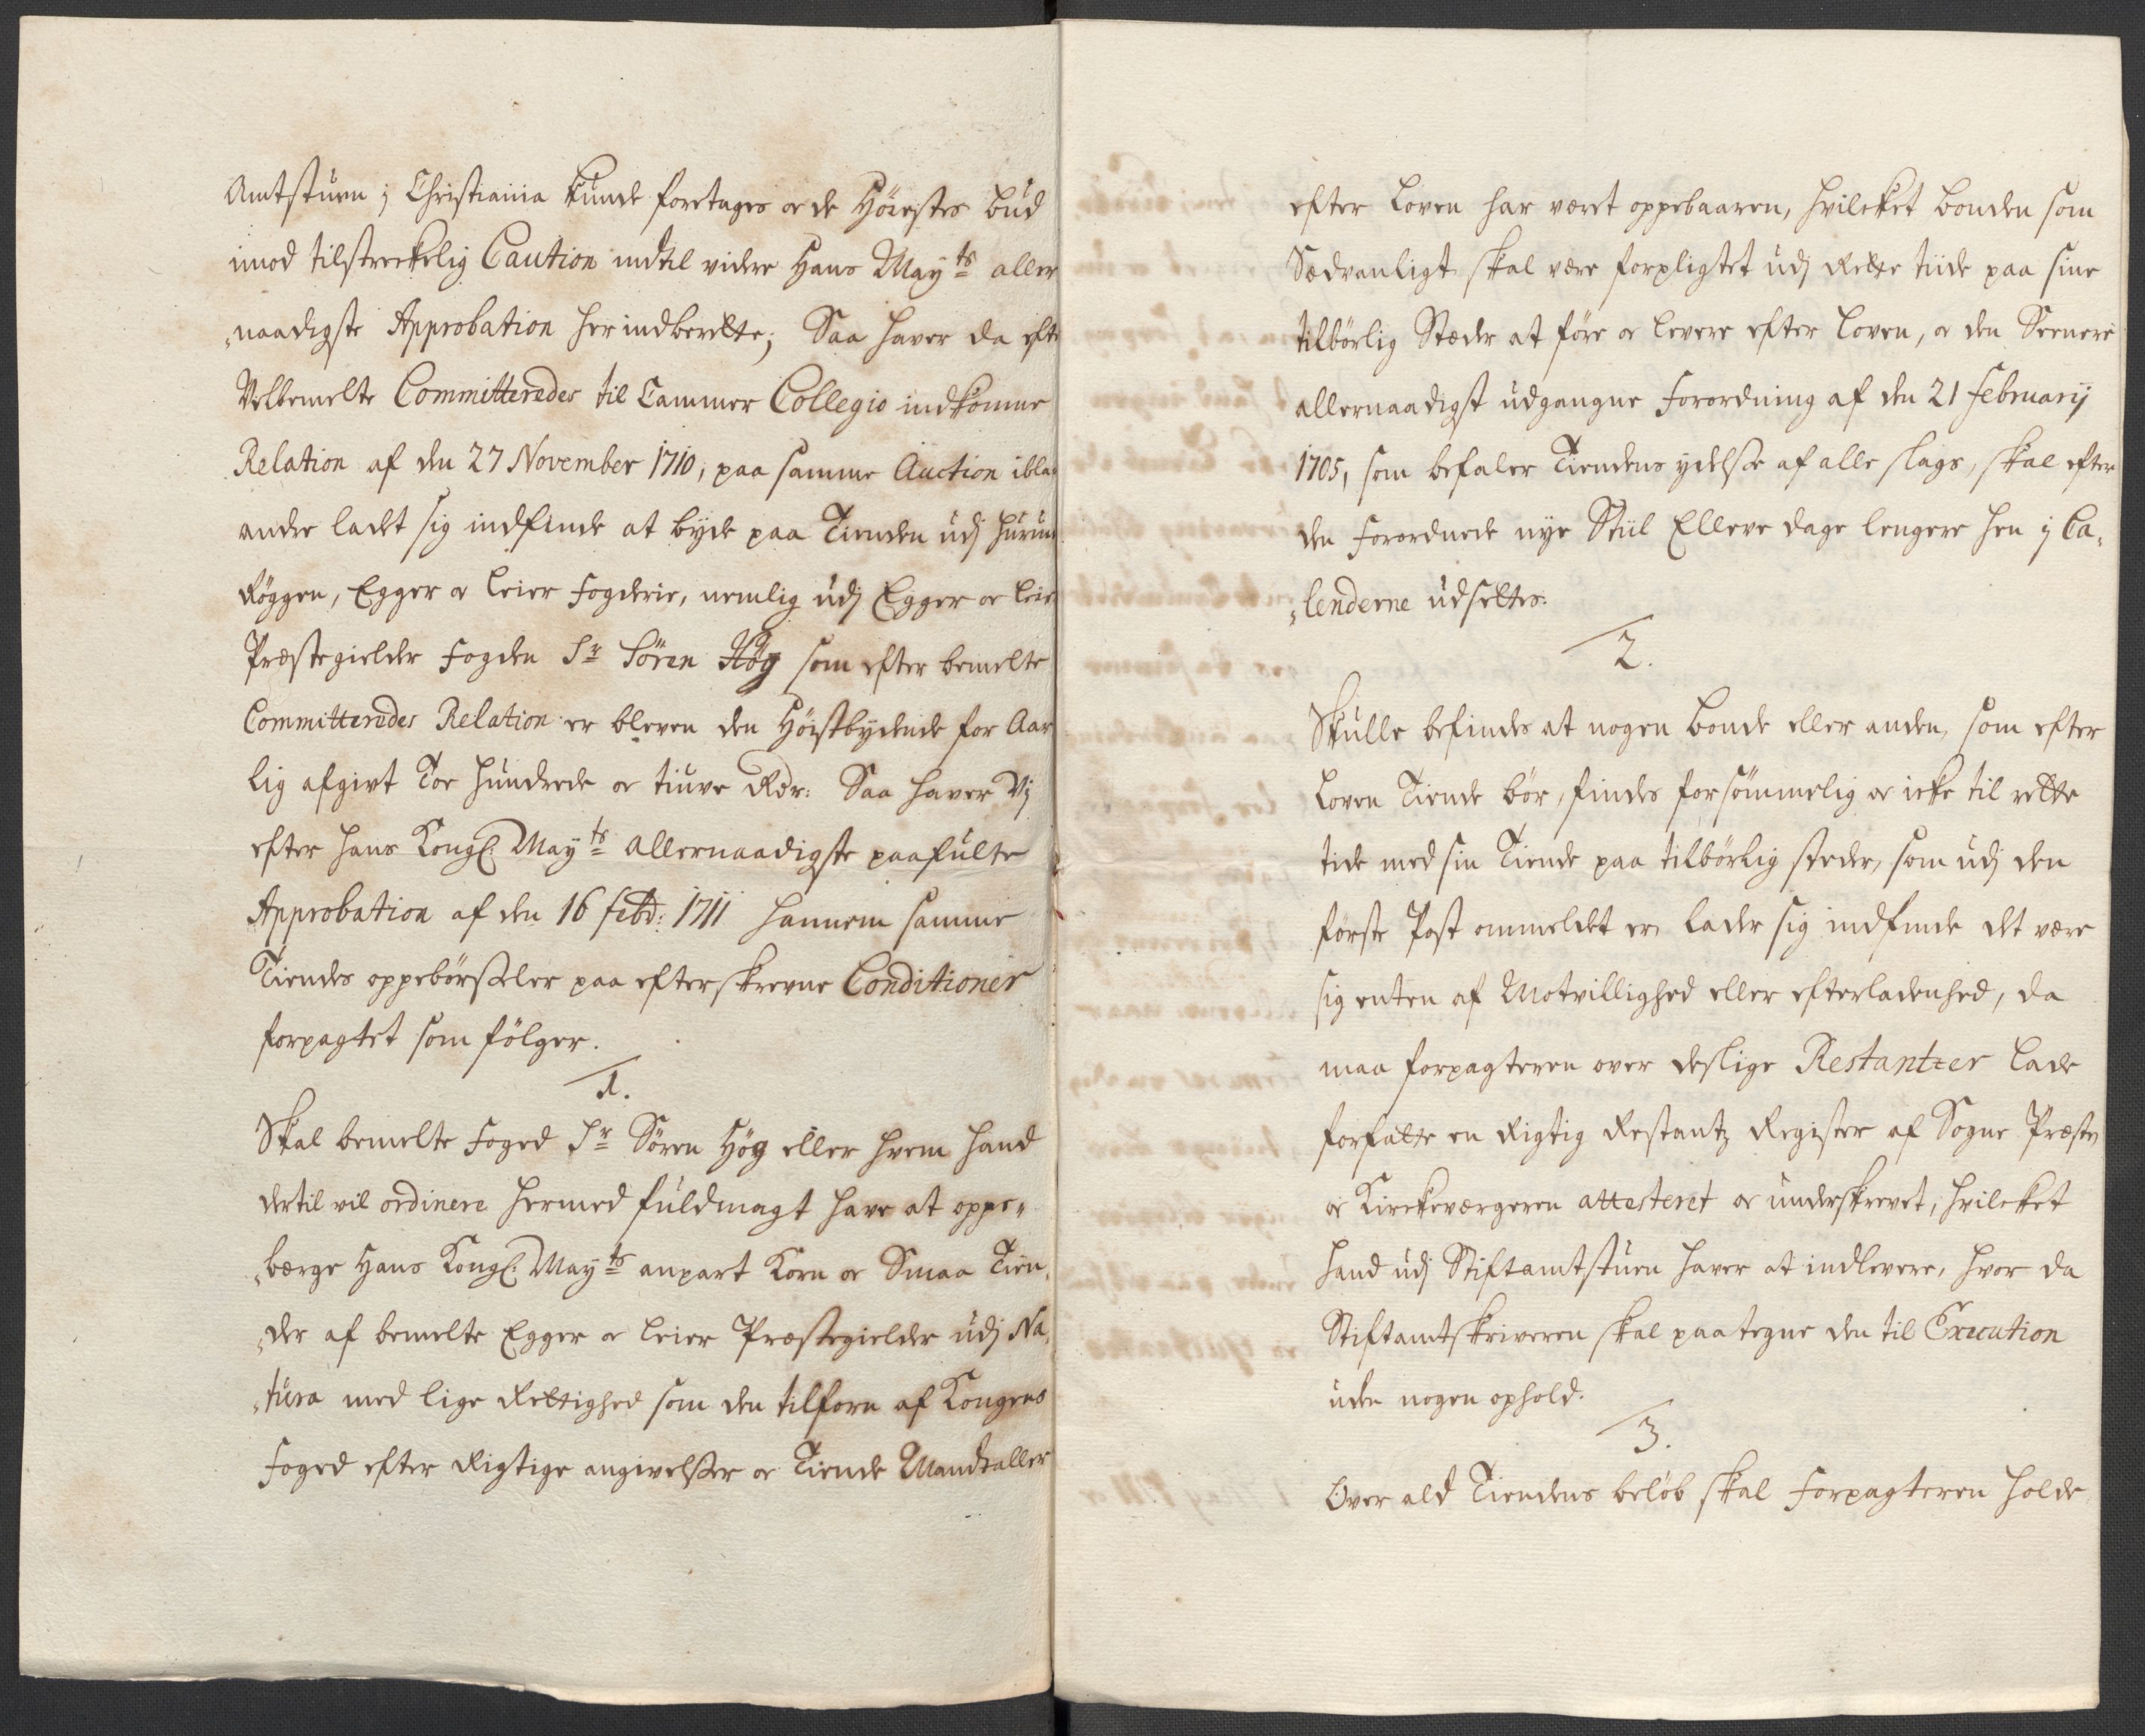 Amtstuen j Christiania kunde foretages oc de Höiestes bud
imod tilstreckelig Caution indtil videre Hans Mayts aller
„naadigste Approbation her indberette; Saa hafver da efter
Velbemelte Committeredes til Cammer Collegio indkomne
Relation af den 27 November 1710, paa samme Auction iblant
andre ladet sig indfinde at byde paa Tienden udj Hurum
Röggen, Egger oc Leier Fogderie, nemlig udj Egger oc Leier
Præstegielder Fogden Sr Sören Høg som efter bemelte
Committeredes Relation er bleven den Höistbydende for Aar
lig afgivt Toe Hundrede oc tiuve Rdr: Saa hafver Vj
efter Hans Kongl. Mayts allernaadigste paafulte
Approbation af den 16 febr: 1711 hannem samme
Tiendes oppebörseler paa efterskrevne Conditioner
forpagtet som fölger.
1.
Skal bemelte Foged Sr Sören Høg eller hvem hand
dertil vil ordinere hermed fuldmagt have at oppe„
„bærge Hans Kongl. Mayts anpart Korn oc Smaa Tien„
„der af bemelte Egger oc Leier Præstegielder udj Na„
„tura med lige Rettighed som den tilforn af Kongens
Foged efter Rigtige angivelser oc Tiende Mandtaller
efter Loven har været oppebaaren, hvilcket bonden som
Sædvanligt skal være forpligtet udj Rette tiide paa sine
tilbörlig Stæder at före oc levere efter Loven, oc den Seenere
allernaadigst udgangne Forordning af den 21 Februarij
1705, som befaler Tiendens ydelse af alle slags, skal efter
den Forordnede nye Stiil Elleve dage lengere hen j Ca„
„lenderne udsettes.
2.
Skulle befindes at nogen bonde eller anden, som efter
Loven Tiende bör, findes forsömmelig oc icke til rette
tide med sin Tiende paa tilbörlig steder, som udj den
förste Post ommeldet er, lader sig indfinde det være
sig enten af Motvillighed eller efterladenhed, da
maa forpagteren over deslige Restantzer lade
forfatte en Rigtig Restantz Register af Sogne Præsten
oc Kirckeværgeren attesteret oc underskrevet, hvilcket
hand udj Stiftamtstuen haver at indlevere, hvor da
Stiftamtskriveren skal paategne den til Execution
uden nogen ophold.
3.
Over ald Tiendens belöb skal Forpagteren holde